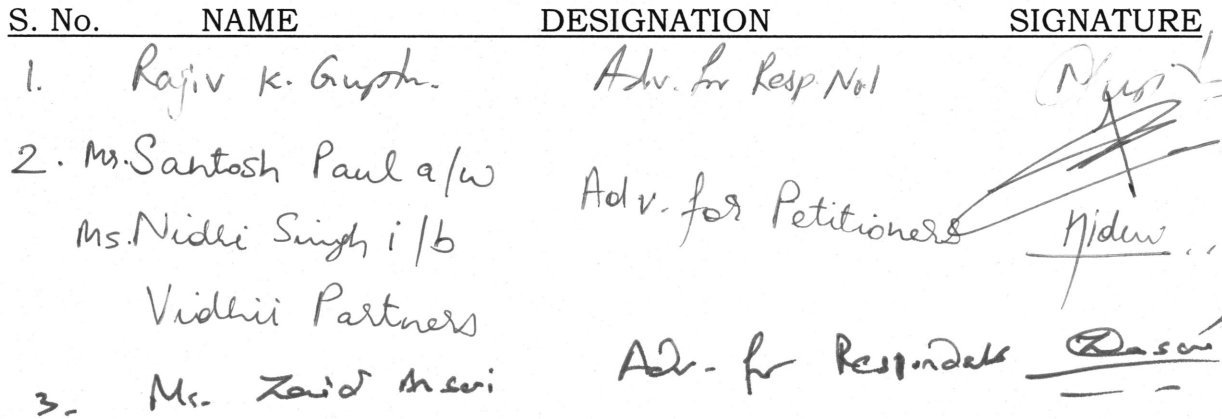 S. No. NAME DESIGNATION SIGNATURE
1. Rajiv K. Gupta. Adv. for Resp. No.1
2. Mr. Santosh Paul a/w
Ms. Nidhi Singh i/b Adv. for Petitioners
Vidhii Partners
3. Mr. Zaid Ansari Adv. for Respondents